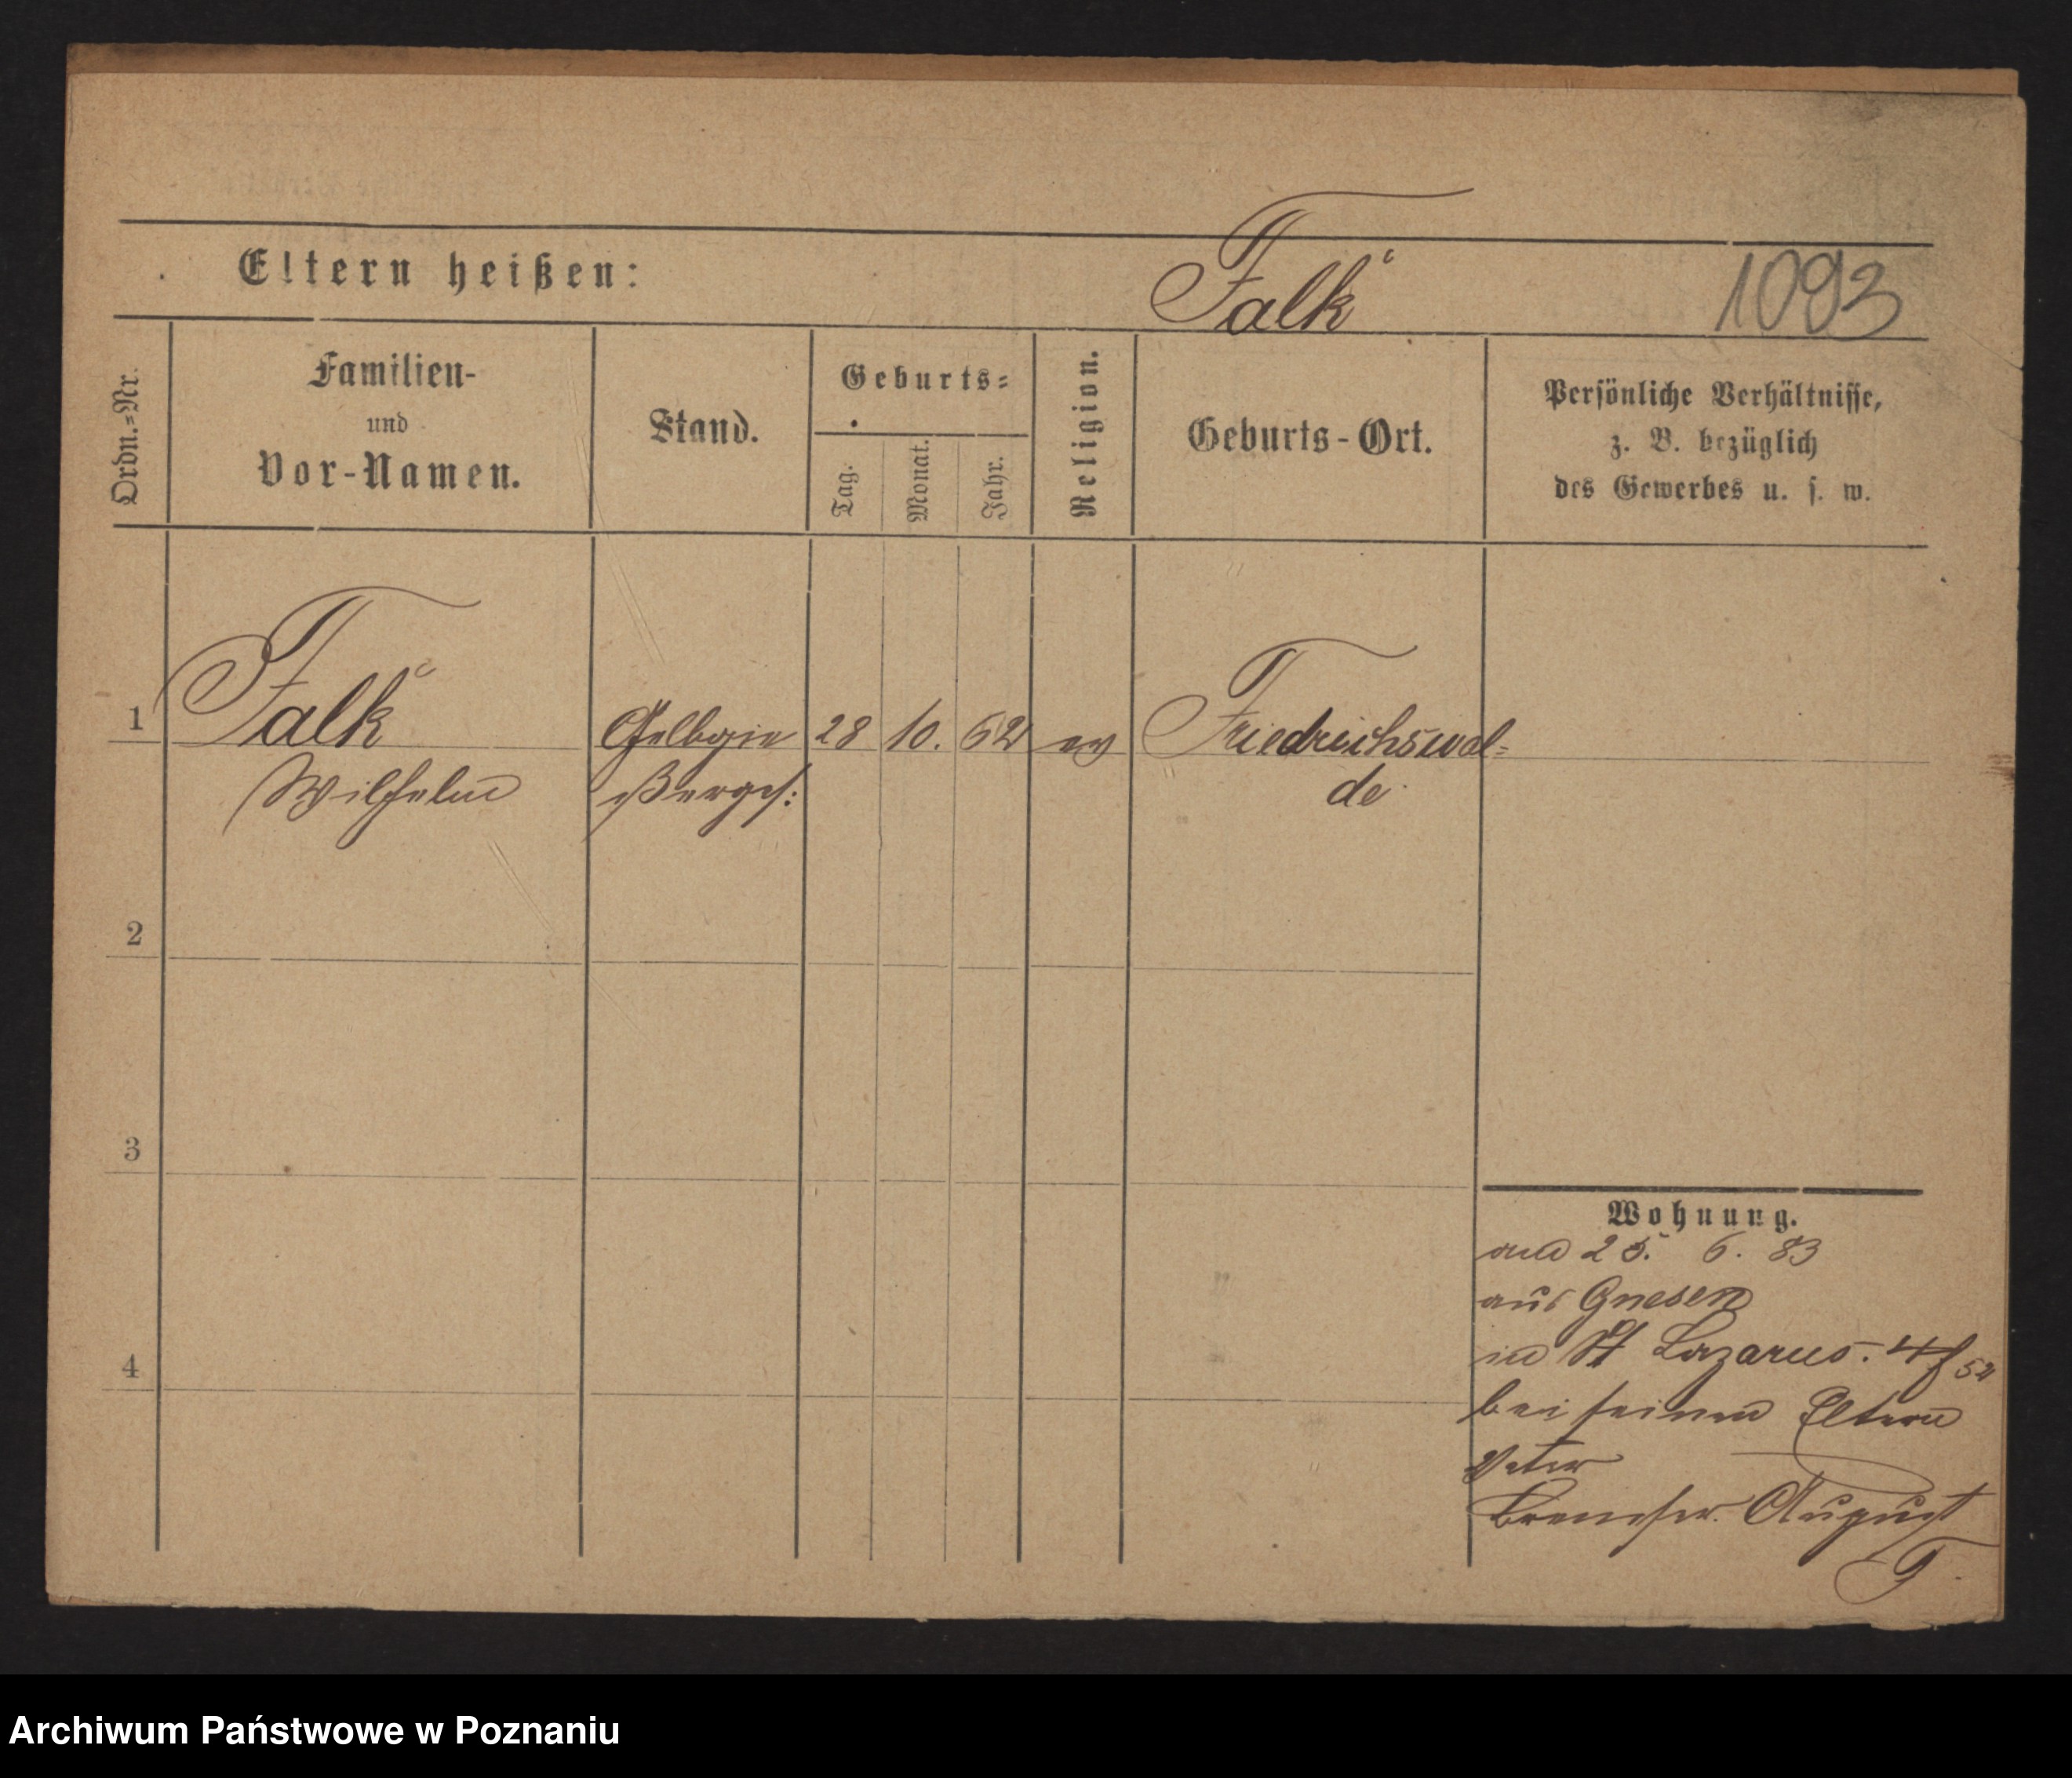 Eltern heißen:
Falk
1093
Ordn.=Nr.
Familien-
und
Vor-Namen.
Stand.
Geburts=
Tag.
Monat.
Jahr.
Religion.
Geburts-Ort.
Persönliche Verhältnisse,
z. B. bezüglich
des Gewerbes u. s. w.
1
Falk
Wilhelm
Gelbgie
ßergs:
28
10.
62
ev
Friedrichswal=
de
2
3
4
Wohnung.
am 25. 6. 83
aus Gnesen
in St Lazarus.
bei seinen Eltern
Vater
August
F.
Archiwum Państwowe w Poznaniu